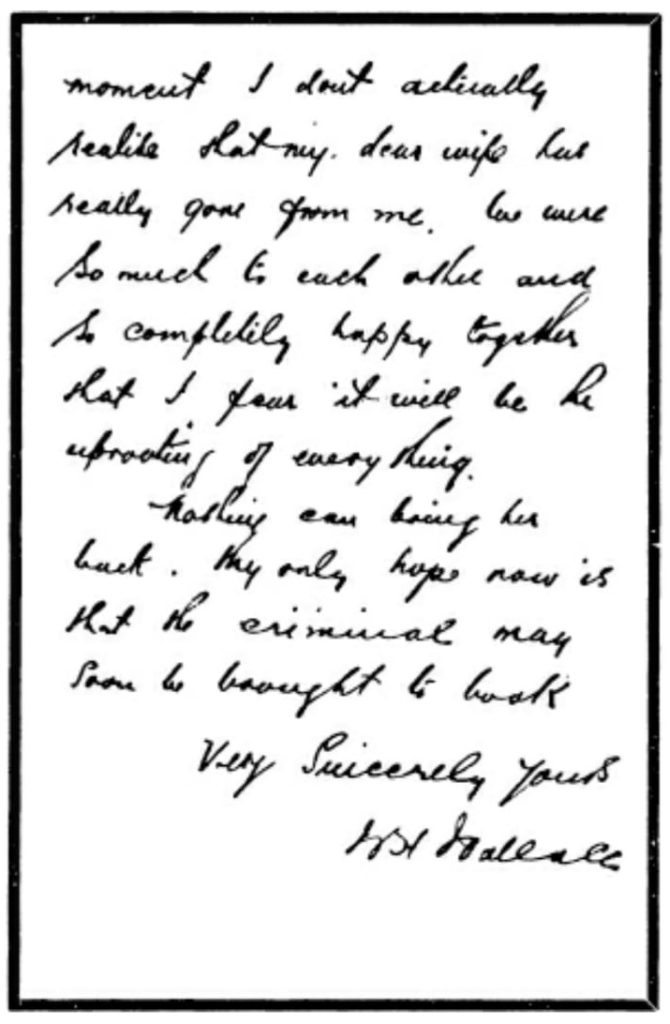 moment I dont actually
realise that my dear wife has
really gone from me. We were
so much to each other and
so completely happy together
that I fear it will be the
uprooting of everything.
Nothing can bring her
back. My only hope now is
that the criminal may
soon be brought to book
Very Sincerely Yours
WH Wallace